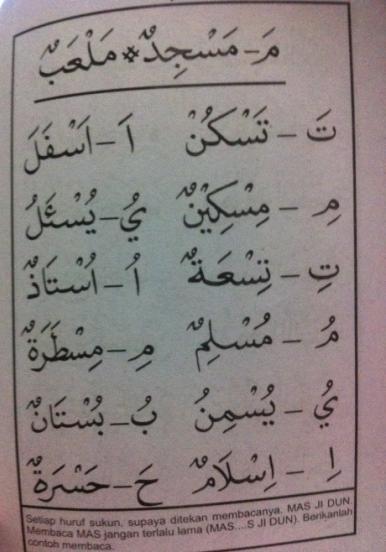 مَ – مَسْجِدٌ * مَلْعَبٌ
تَ – تَسْكُنْ اَ – اَسْفَلَ
مِ – مِسْكِيْنٌ يُ – يُسْئَلُ
تِ – تِسْعَةٌ اُ – اُسْتَاذٌ
مُ – مُسْلِمٌ مِ – مِسْطَرَةٌ
يُ – يُسْمِنُ بُ – بُسْتَانٌ
اِ – اِسْلَامٌ حَ – حَسْرَةٌ
Setiap huruf sukun, supaya ditekan membacanya. MAS JI DUN.
Membaca MAS jangan terlalu lama (MAS....S JI DUN). Berikanlah
contoh membaca.